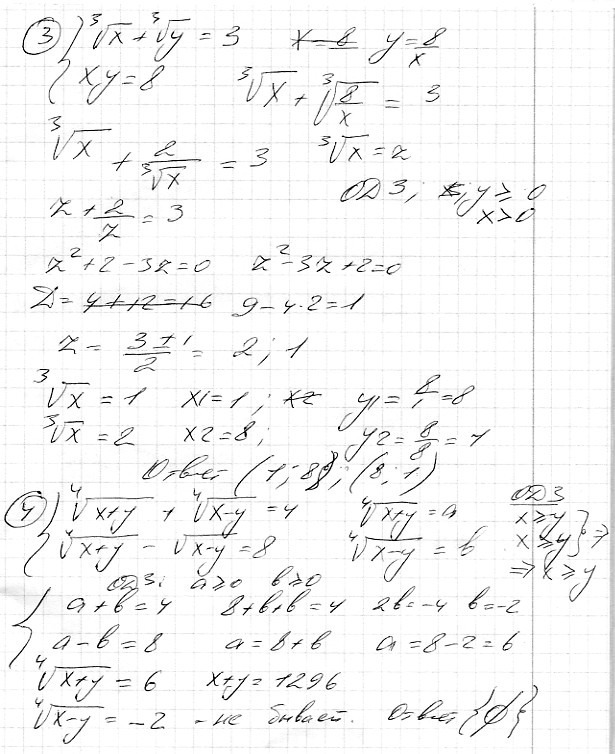 ③ { ∛x + ∛y = 3   x = 8   y = 8/x
xy = 8   ∛x + ∛(8/x) = 3
∛x + 2/∛x = 3   ∛x = z
ОДЗ; x; y ≥ 0
x > 0
z + 2/z = 3
z² + 2 - 3z = 0   z² - 3z + 2 = 0
D = 4 + 12 = 16   9 - 4·2 = 1
z = (3 ± 1)/2 = 2; 1
∛x = 1   x1 = 1; x2   y1 = 8/1 = 8
∛x = 2   x2 = 8;   y2 = 8/8 = 1
Ответ (1; 8); (8; 1)
④ { ∜(x+y) + ∜(x-y) = 4   ∜(x+y) = a   ОДЗ
∜(x+y) - √(x-y) = 8   ∜(x-y) = b   x ≥ y
x ≥ y } ⇒
⇒ x ≥ y
ОДЗ: a ≥ 0   b ≥ 0
{ a + b = 4   8 + b + b = 4   2b = -4   b = -2
a - b = 8   a = 8 + b   a = 8 - 2 = 6
∜(x+y) = 6   x + y = 1296
∜(x-y) = -2 - не бывает.   Ответ {∅}